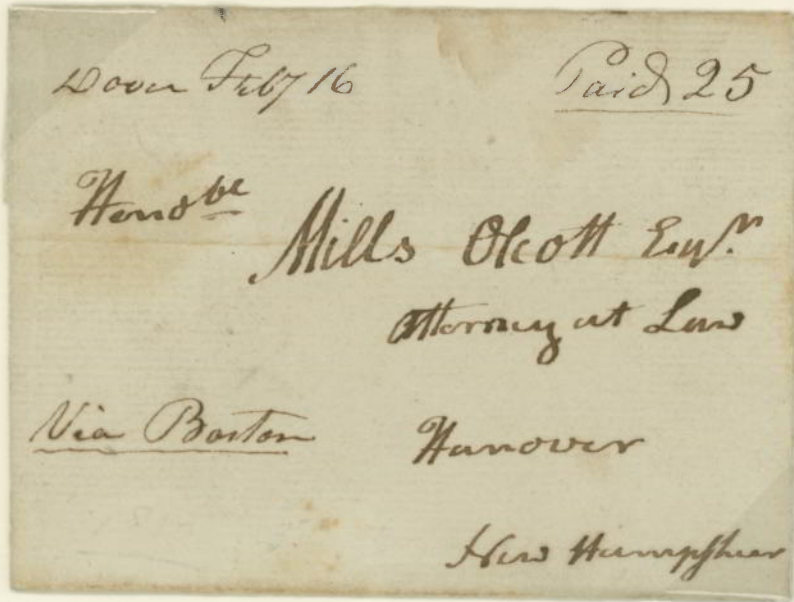 Dover Feby 16 Paid 25
Honobe
Mills Olcott Esqr.
Attorney at Law
Via Boston Hanover
New Hampsheer